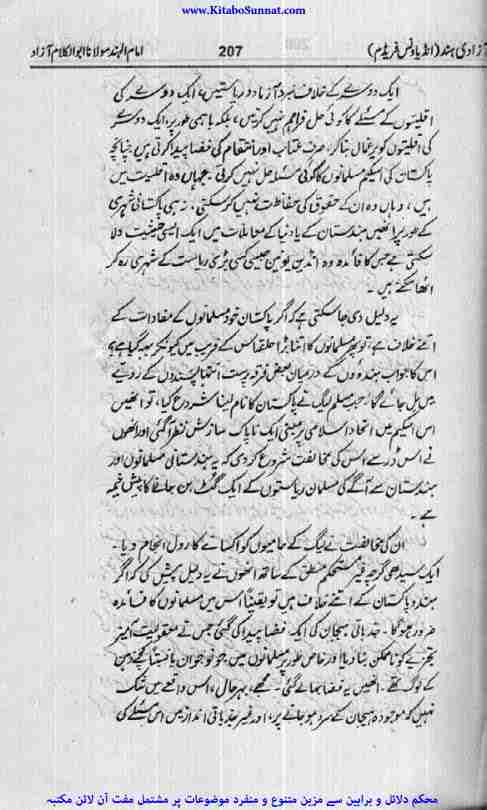 www.KitaboSunnat.com
آزادی ہند (انڈیا ونس فریڈم) 207 امام الہند مولانا ابوالکلام آزاد
ایک دوسرے کے خلاف نبرد آزما دو ریاستیں، ایک دوسرے کی
اقلیتوں کے مسئلے کا کوئی حل فراہم نہیں کرتیں، بلکہ باہمی طور پر، ایک دوسرے
کی اقلیتوں کو یرغمال بنا کر، صرف عتاب اور انتقام کی فضا پیدا کرتی ہیں۔ چنانچہ
پاکستان کی اسکیم مسلمانوں کا کوئی مسئلہ حل نہیں کرتی۔ جہاں وہ اقلیت میں
ہیں، وہاں وہ ان کے حقوق کی حفاظت نہیں کر سکتی، نہ ہی پاکستانی شہری
کے طور پر انھیں ہندستان کے یا دنیا کے معاملات میں ایک ایسی حیثیت دلا
سکتی ہے جس کا فائدہ وہ انڈین یونین جیسی کسی بڑی ریاست کے شہری رہ کر
اٹھا سکتے ہیں۔
یہ دلیل دی جا سکتی ہے کہ اگر پاکستان خود مسلمانوں کے مفادات کے
اتنے خلاف ہے، تو پھر مسلمانوں کا اتنا بڑا حلقہ اس کے فریب میں کیونکر آ گیا ہے؟
اس کا جواب ہندوؤں کے درمیان بعض فرقہ پرست انتہا پسندوں کے رویے
میں مل جائے گا، جب مسلم لیگ نے پاکستان کا نام لینا شروع کیا، تو انھیں
اس اسکیم میں اتحاد اسلامی پر مبنی ایک ناپاک سازش نظر آ گئی اور انھوں
نے اس ڈر سے اس کی مخالفت شروع کر دی کہ یہ ہندستانی مسلمانوں اور
ہندستان سے آگے کی مسلمان ریاستوں کے ایک گٹھ بن جانے کا پیش خیمہ
ہے۔
ان کی مخالفت نے لیگ کے حامیوں کو اکسانے کا رول انجام دیا۔
ایک سیدھی گرچہ غیر مستحکم منطق کے ساتھ انھوں نے یہ دلیل پیش کی کہ اگر
ہندو پاکستان کے اتنے خلاف ہیں تو یقیناً اس میں مسلمانوں کا فائدہ
ضرور ہوگا۔ جذباتی ہیجان کی ایک فضا پیدا کی گئی جس نے معقولیت آمیز
تجزیے کو ناممکن بنا دیا اور خاص طور پر مسلمانوں میں، جو نوجوان یا نسبتاً کچے ذہن
کے لوگ تھے۔ انھیں یہ فضا بہا لے گئی۔ مجھے، بہر حال، اس واقعے میں شک
نہیں کہ موجودہ ہیجان کے سرد ہو جانے پر، اور غیر جذباتی انداز میں اس مسئلے کی
محکم دلائل و براہین سے مزین متنوع و منفرد موضوعات پر مشتمل مفت آن لائن مکتبہ